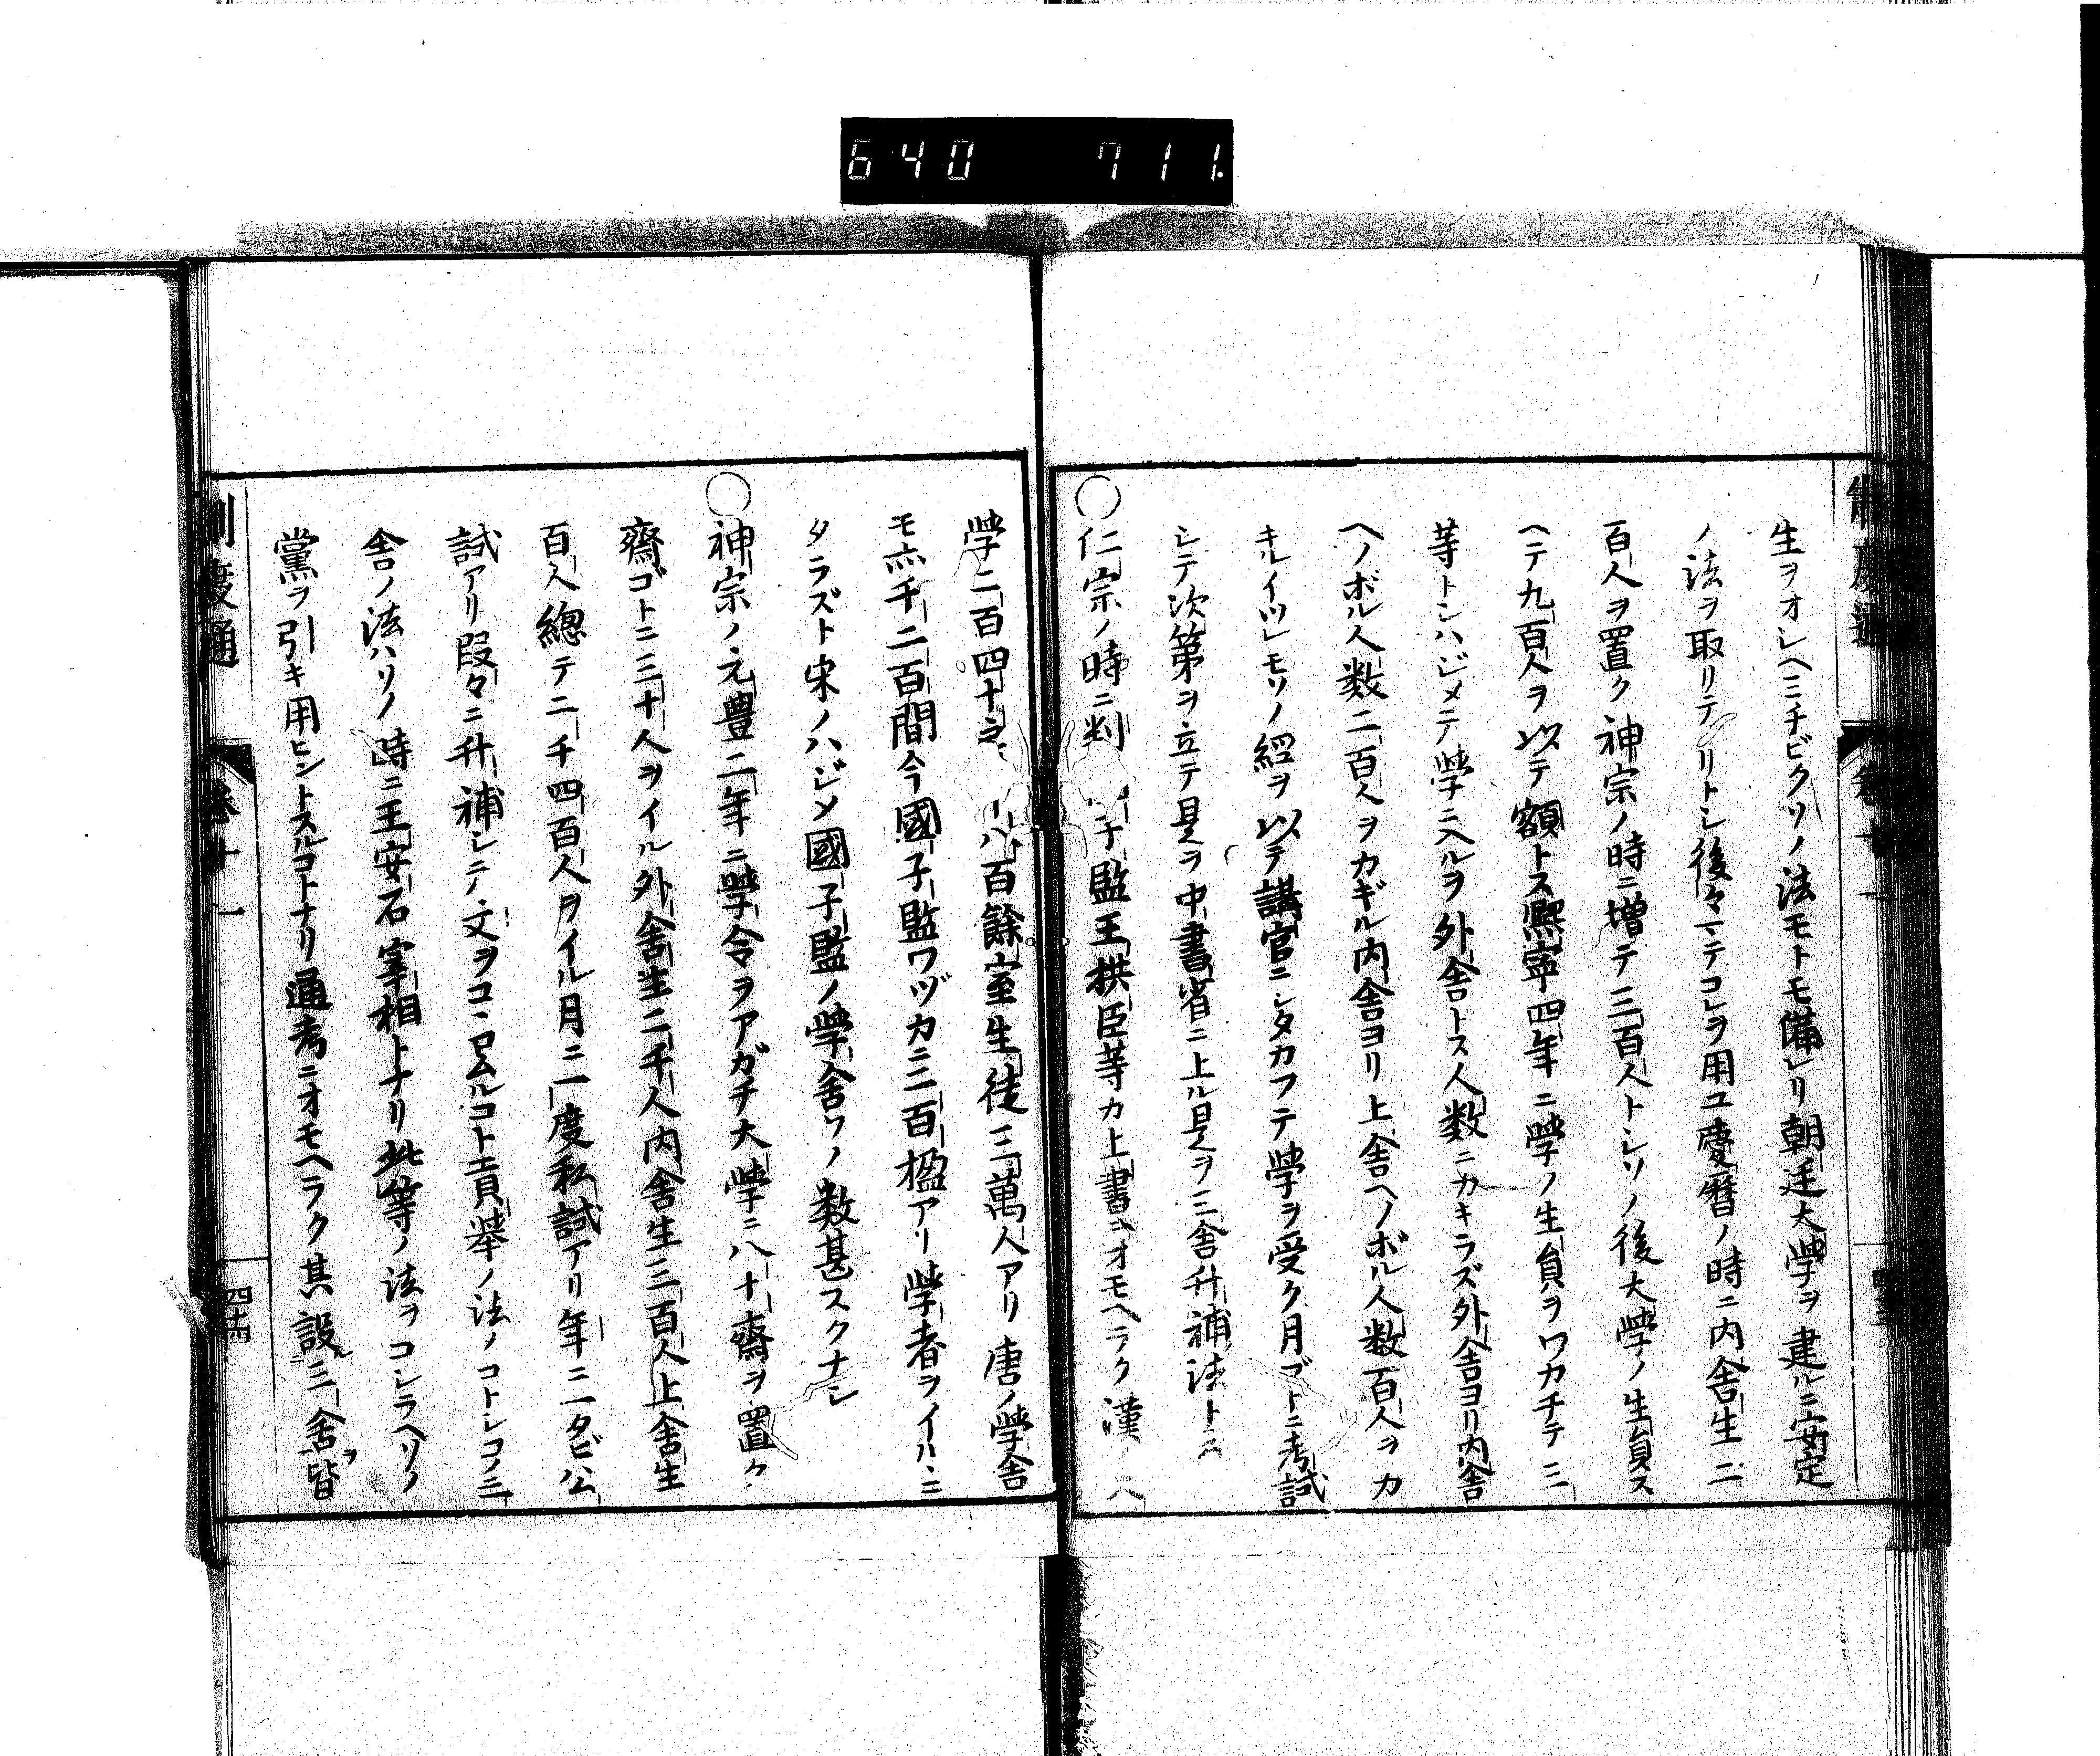 640 711.
生ヲオシヘミチビクソノ法モトモ備レリ朝廷大學ヲ建ルニ安定
ノ法ヲ取リテノリトシ後々マテコレヲ用ユ慶曆ノ時ニ内舎生二
百人ヲ置ク神宗ノ時ニ増テ三百人トシソノ後大學ノ生員ス
ヘテ九百人ヲ以テ額トス熈寧四年ニ學ノ生員ヲワカチテ三
等トシハジメテ學ニ入ルヲ外舎トス人数ニカキラズ外舎ヨリ内舎
ヘノボル人数二百人ヲカギル内舎ヨリ上舎ヘノボル人数百人ヲカ
キルイツレモソノ經ヲ以テ講官ニシタカフテ學ヲ受ク月ゴトニ考試
シテ次第ヲ立テ是ヲ中書省ニ上ル是ヲ三舎升補法トス
○仁宗ノ時ニ判 子監王拱臣等カ上書ニオモヘラク漢ノ
學二百四十 八百餘室生徒三萬人アリ唐ノ學舎
モ亦千二百間今國子監ワヅカニ二百楹アリ學者ヲイルヽニ
タラズト宋ノハジメ國子監ノ學舎ソノ数甚スクナシ
○神宗ノ元豊二年ニ學令ヲアガチ大學ニ八十齋ヲ置ク
齋ゴトニ三十人ヲイル外舎生二千人内舎生三百人上舎生
百人總テ二千四百人ヲイル月ニ一度私試アリ年ニ一タビ公
試アリ段々ニ升補シテ文ヲコヽロムルコト貢舉ノ法ノコトシコノ三
舎ノ法ハソノ時ニ王安石宰相トナリ此等ノ法ヲコシラヘソノ
黨ヲ引キ用ヒントスルコトナリ通考ニオモヘラク其設三舎皆
制度通 卷十一 四十四